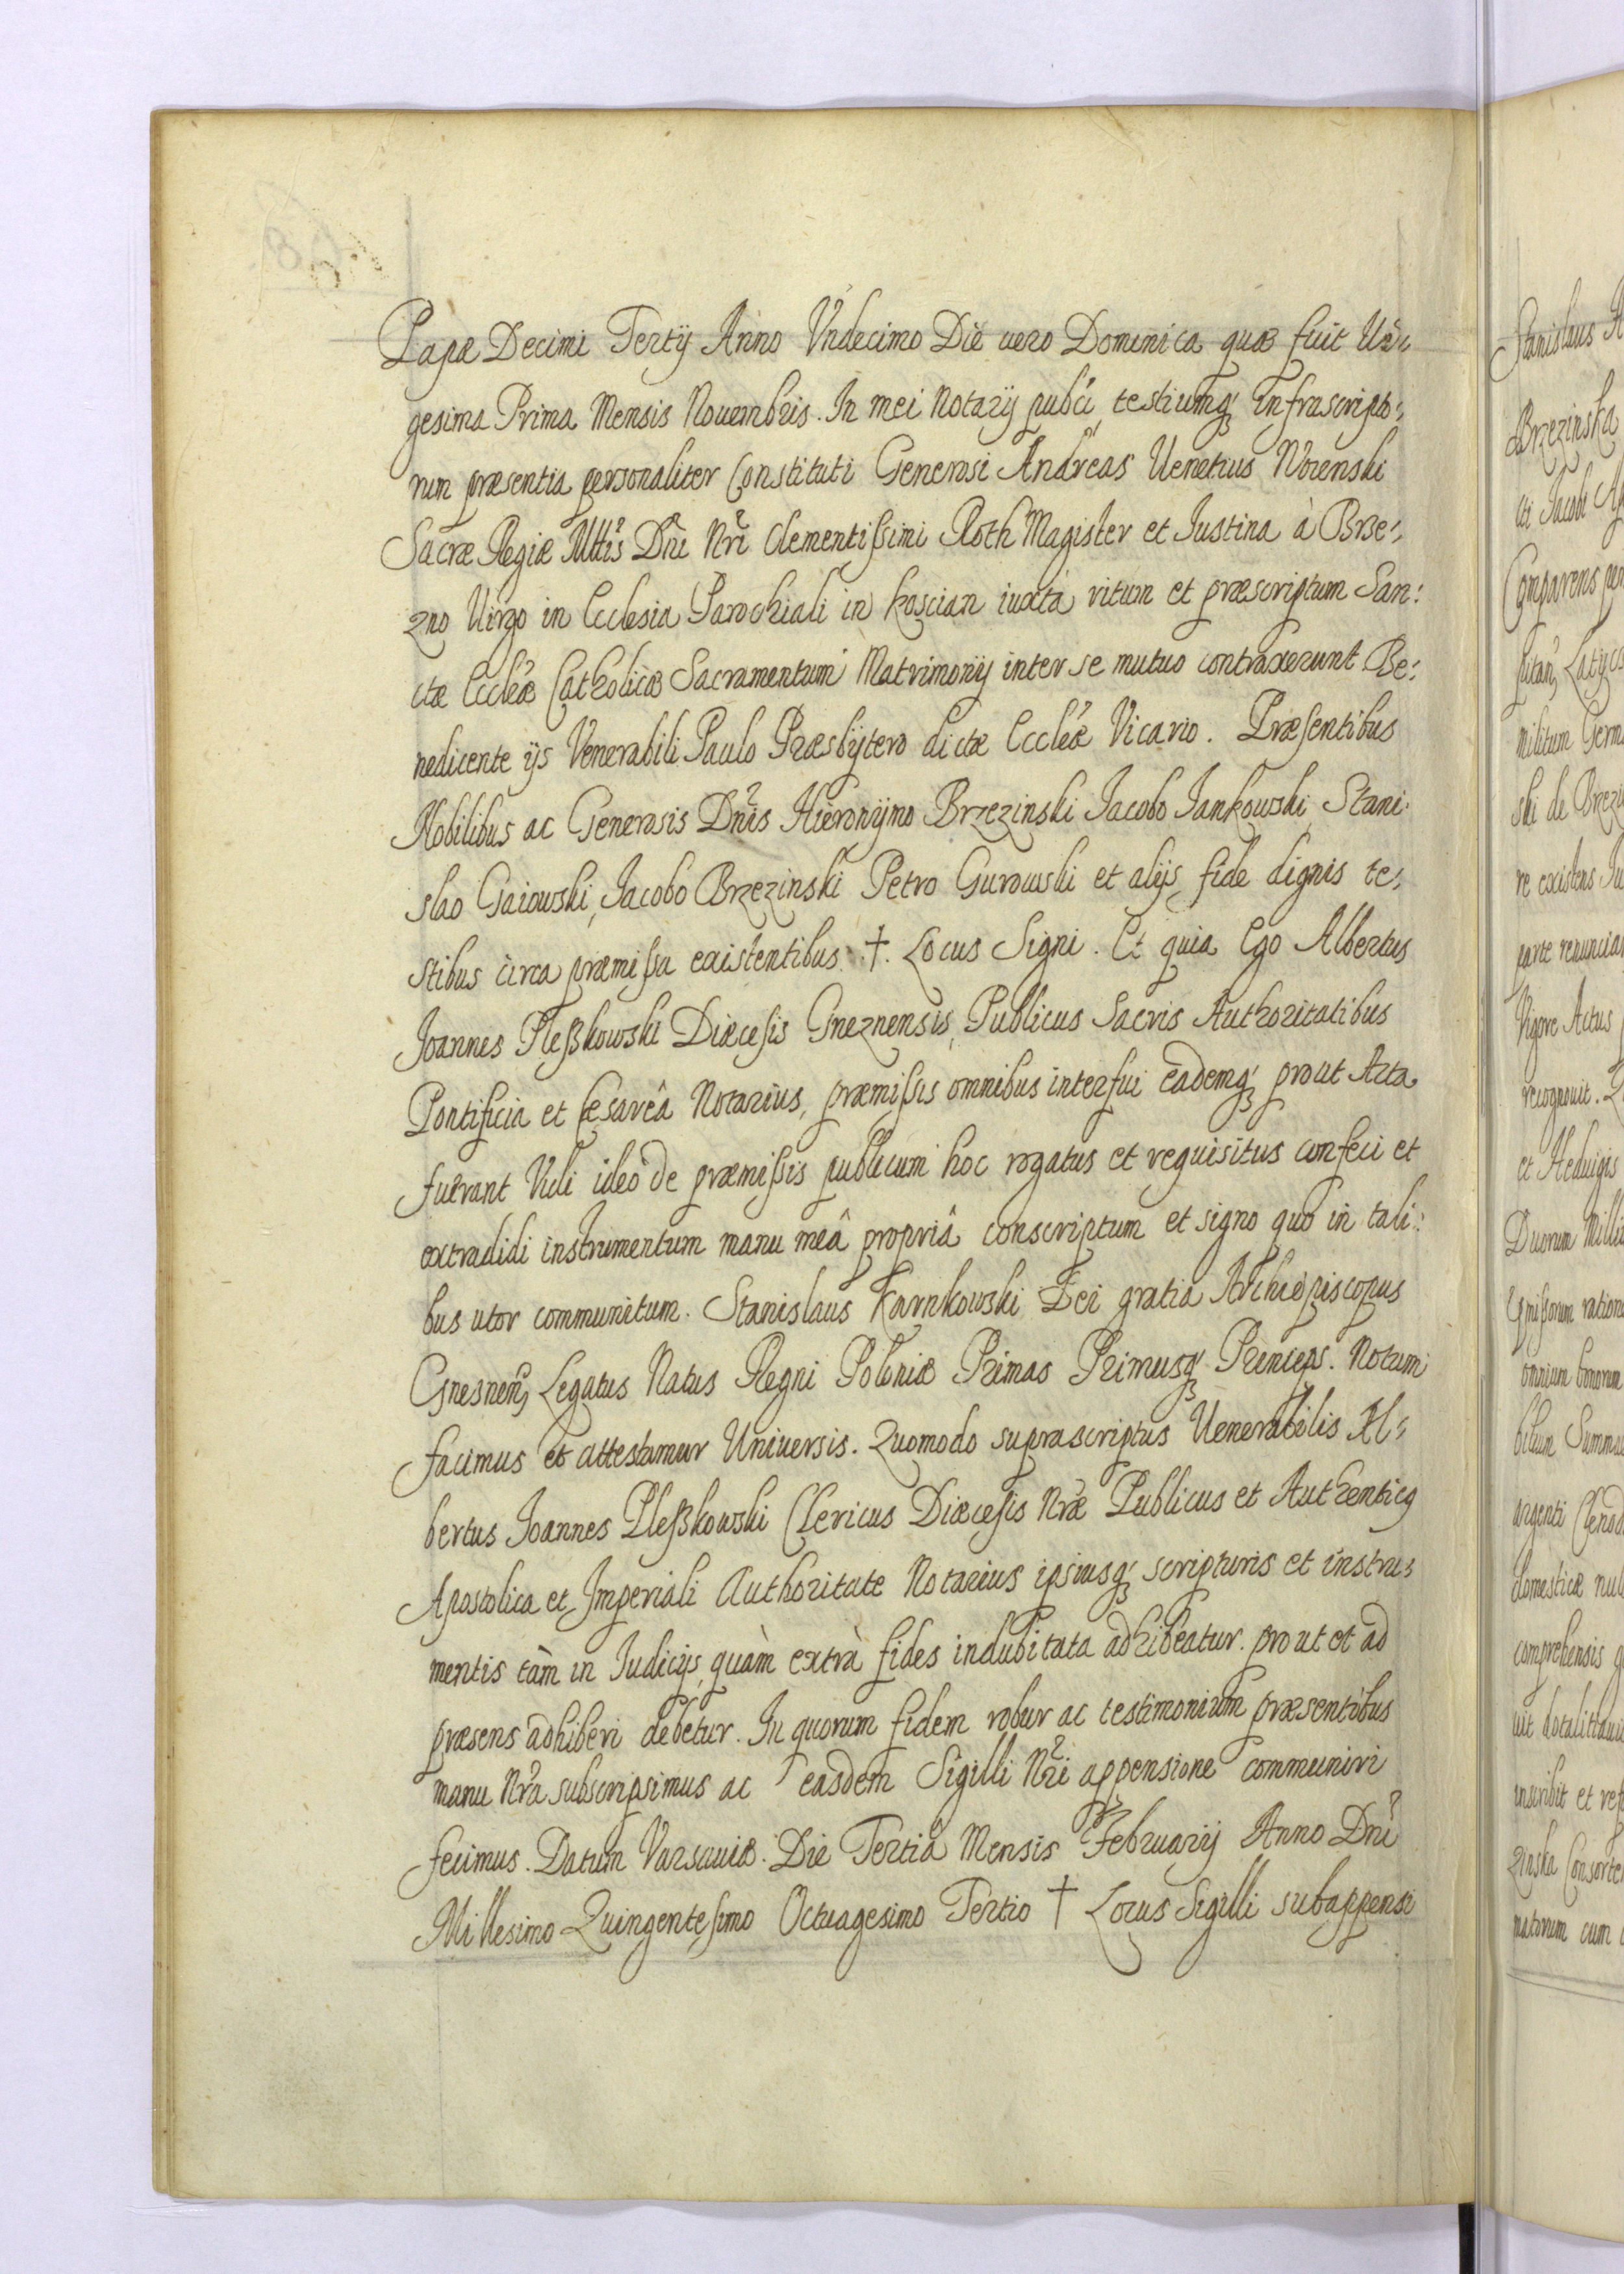 Papæ Decimi Tertij Anno Vndecimo Die uero Dominica quæ fuit Ui-
gesima Prima Mensis Nouembris. In mei Notarij pubci, testiumq; infrascripto-
rum præsentia personaliter Constituti Generosi Andreas Uenetius Worenski
Sacræ Regiæ Mttis Dni Nri Clementißimi Roth Magister et Iustina à Brze-
zno Uirgo in Ecclesia Parochiali in Koscian iuxta ritum et præscriptum San:
ctæ Eccleæ Catholicæ Sacramentum Matrimonij inter se mutuo contraxerunt Be:
nedicente ijs Venerabili Paulo Præsbytero dictæ Eccleæ Vicario. Præsentibus
Nobilibus ac Generosis Dnis Hieronymo Brzezinski Iacobo Iankowski, Stani-
slao Gaiowski, Iacobo Brzezinski Petro Gurowski et alijs fide dignis te-
stibus circa præmißa existentibus. †. Locus Signi. Et quia Ego Albertus
Joannes Pleßkowski Diæcesis Gneznensis, Publicus Sacris Authoritatibus
Pontificia et Cesareâ Notarius, præmißis omnibus interfui eademq; prout Acta
fuerant Vidi ideo de præmißis publicum hoc rogatus et requisitus confeci et
extradidi instrumentum manu meâ propriâ conscriptum et signo quo in tali:
bus utor communitum. Stanislaus Karnkowski Dei gratia Archiepiscopus
Gnesnen, Legatus Natus Regni Poloniæ Primas Primusq; Princeps. Notum
facimus et attestamur Uniuersis. Quomodo suprascriptus Uenerabilis Al-
bertus Joannes Pleßkowski Clericus Diæcesis Nræ Publicus et Authenticq
Apostolica et Imperiali Authoritate Notarius ipsiusq; scripturis et instru-
mentis tàm in Iudicijs quàm extrà fides indubitata adhibeatur. prout et ad
præsens adhiberi debetur. In quorum fidem robur ac testimonium præsentibus
manu Nra subscripsimus ac easdem Sigilli Nri appensione communiri
fecimus. Datum Varsauiæ. Die Tertia Mensis Februarij Anno Dni
Millesimo Quingentesimo Octuagesimo Tertio † Locus Sigilli subappensi
Stanislaus
Brzezinska
cti Jacobi
Comparens
militum
ski de
re existens
parte
Vigore Actus
recognouit.
et Heduigis
Duorum
omnium bonorum
argenti
domesticæ
comprehensis
inscribit et
zinska
matorum cum